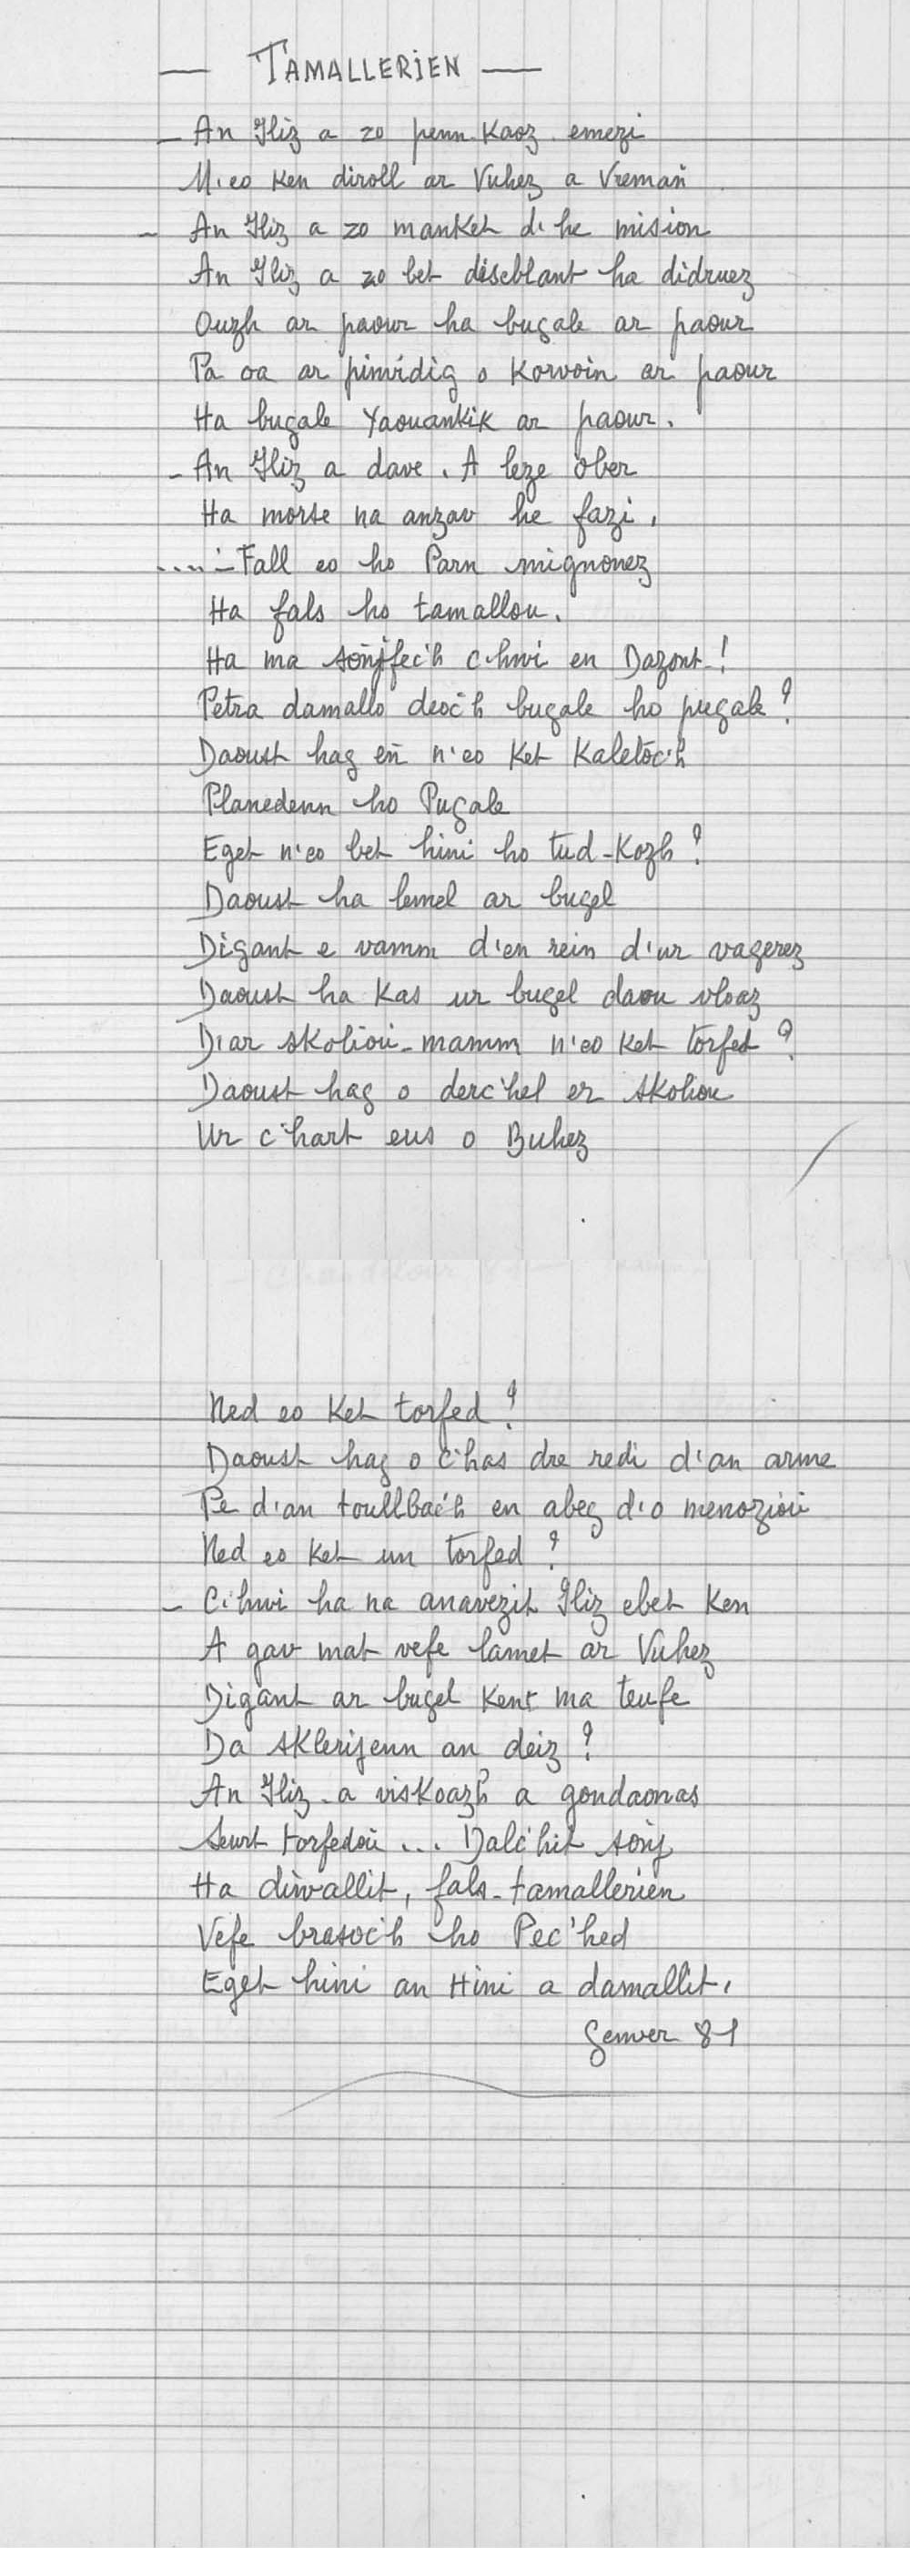 — TAMALLERIEN —
- An Iliz a zo penn-Kaoz emezi
M'eo Ken diroll ar Vuhez a Vremañ
- An Iliz a zo manket d'he mision
An Iliz a zo bet diseblant ha didruez
Ouzh ar paour ha bugale ar paour
Pa oa ar pinvidig o Korvoiñ ar paour
Ha bugale Yaouankik ar paour.
- An Iliz a dave. A leze Ober
Ha morse na anzav he fazi.
....- Fall eo ho Parn mignonez
Ha fals ho tamallou.
Ha ma soñjfec'h c'hwi en Dazont-!
Petra damallo deoc'h bugale ho pugale?
Daoust hag eñ n'eo Ket Kaletoc'h
Planedenn ho Pugale
Eget n'eo bet hini ho tud-Kozh?
Daoust ha lemel ar bugel
Digant e vamm d'en rein d'ur vagerez
Daoust ha Kas ur bugel daou vloaz
D'ar skoliou-mamm n'eo Ket torfed?
Daoust hag o derc'hel er skoliou
Ur c'hart eus o Buhez
Ned eo Ket torfed?
Daoust hag o c'has dre redi d'an arme
Pe d'an toullbac'h en abeg d'o menoziou
Ned eo Ket un torfed?
- C'hwi ha na anavezit Iliz ebet Ken
A gav mat vefe lamet ar Vuhez
Digant ar bugel Kent ma teufe
Da sklerijenn an deiz?
An Iliz a viskoazh a gondaonas
Seurt torfedou... Dalc'hit soñj
Ha diwallit, fals-tamallerien
Vefe brasoc'h ho Pec'hed
Eget hini an Hini a damallit.
Genver 81